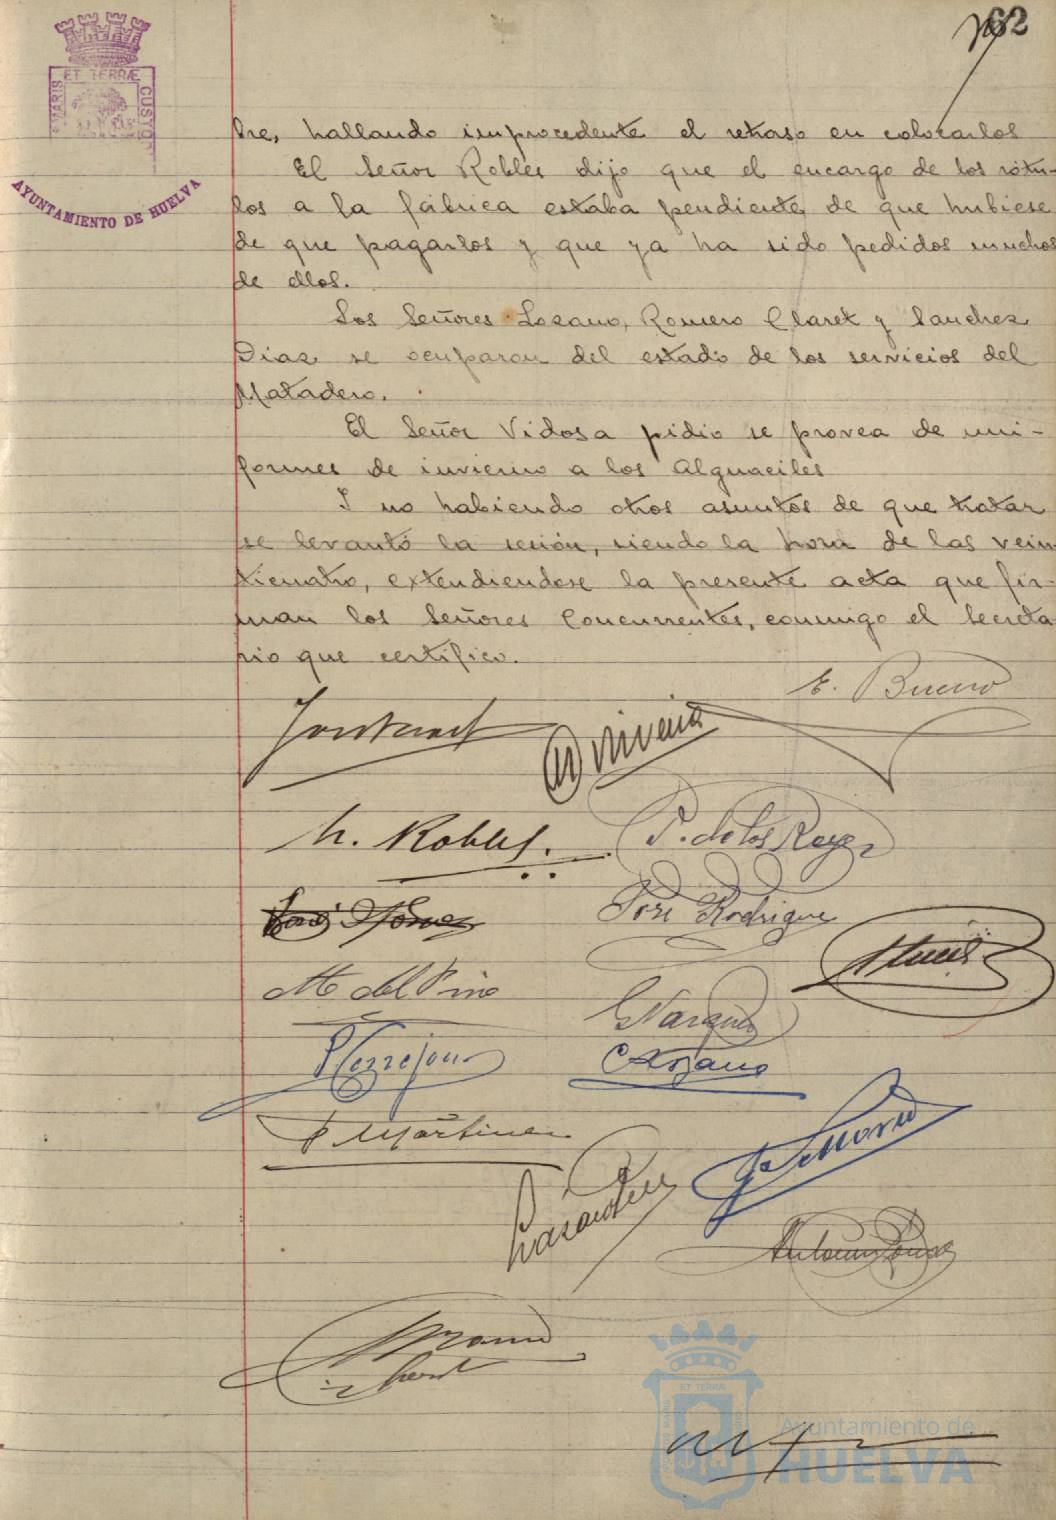 62
ET TERRÆ
MARIS
CUSTO
AYUNTAMIENTO DE HUELVA
bre, hallando improcedente el retraso en colocarlos
El Señor Robles dijo que el encargo de los rótu-
los a la fábrica estaba pendiente, de que hubiese
de que pagarlos y que ya ha sido pedidos muchos
de ellos.
Los Señores Lozano, Romero Claret y Sanchez
Diaz se ocuparon del estado de los servicios del
Matadero.
El Señor Vidosa pidio se provea de uni-
formes de invierno a los Alguaciles
I no habiendo otros asuntos de que tratar
se levantó la sesión, siendo la hora de las vein
ticuatro, extendiendose la presente acta que fir-
man los Señores Concurrentes, conmigo el Secreta
rio que certifico.
E. Bueno
M. Robles.
P. de los Reyes
José Rodrigue
M. del Pino
G Vazquez
P Cerrejon
C Lozano
P Martinez
Ayuntamiento de
HUELVA